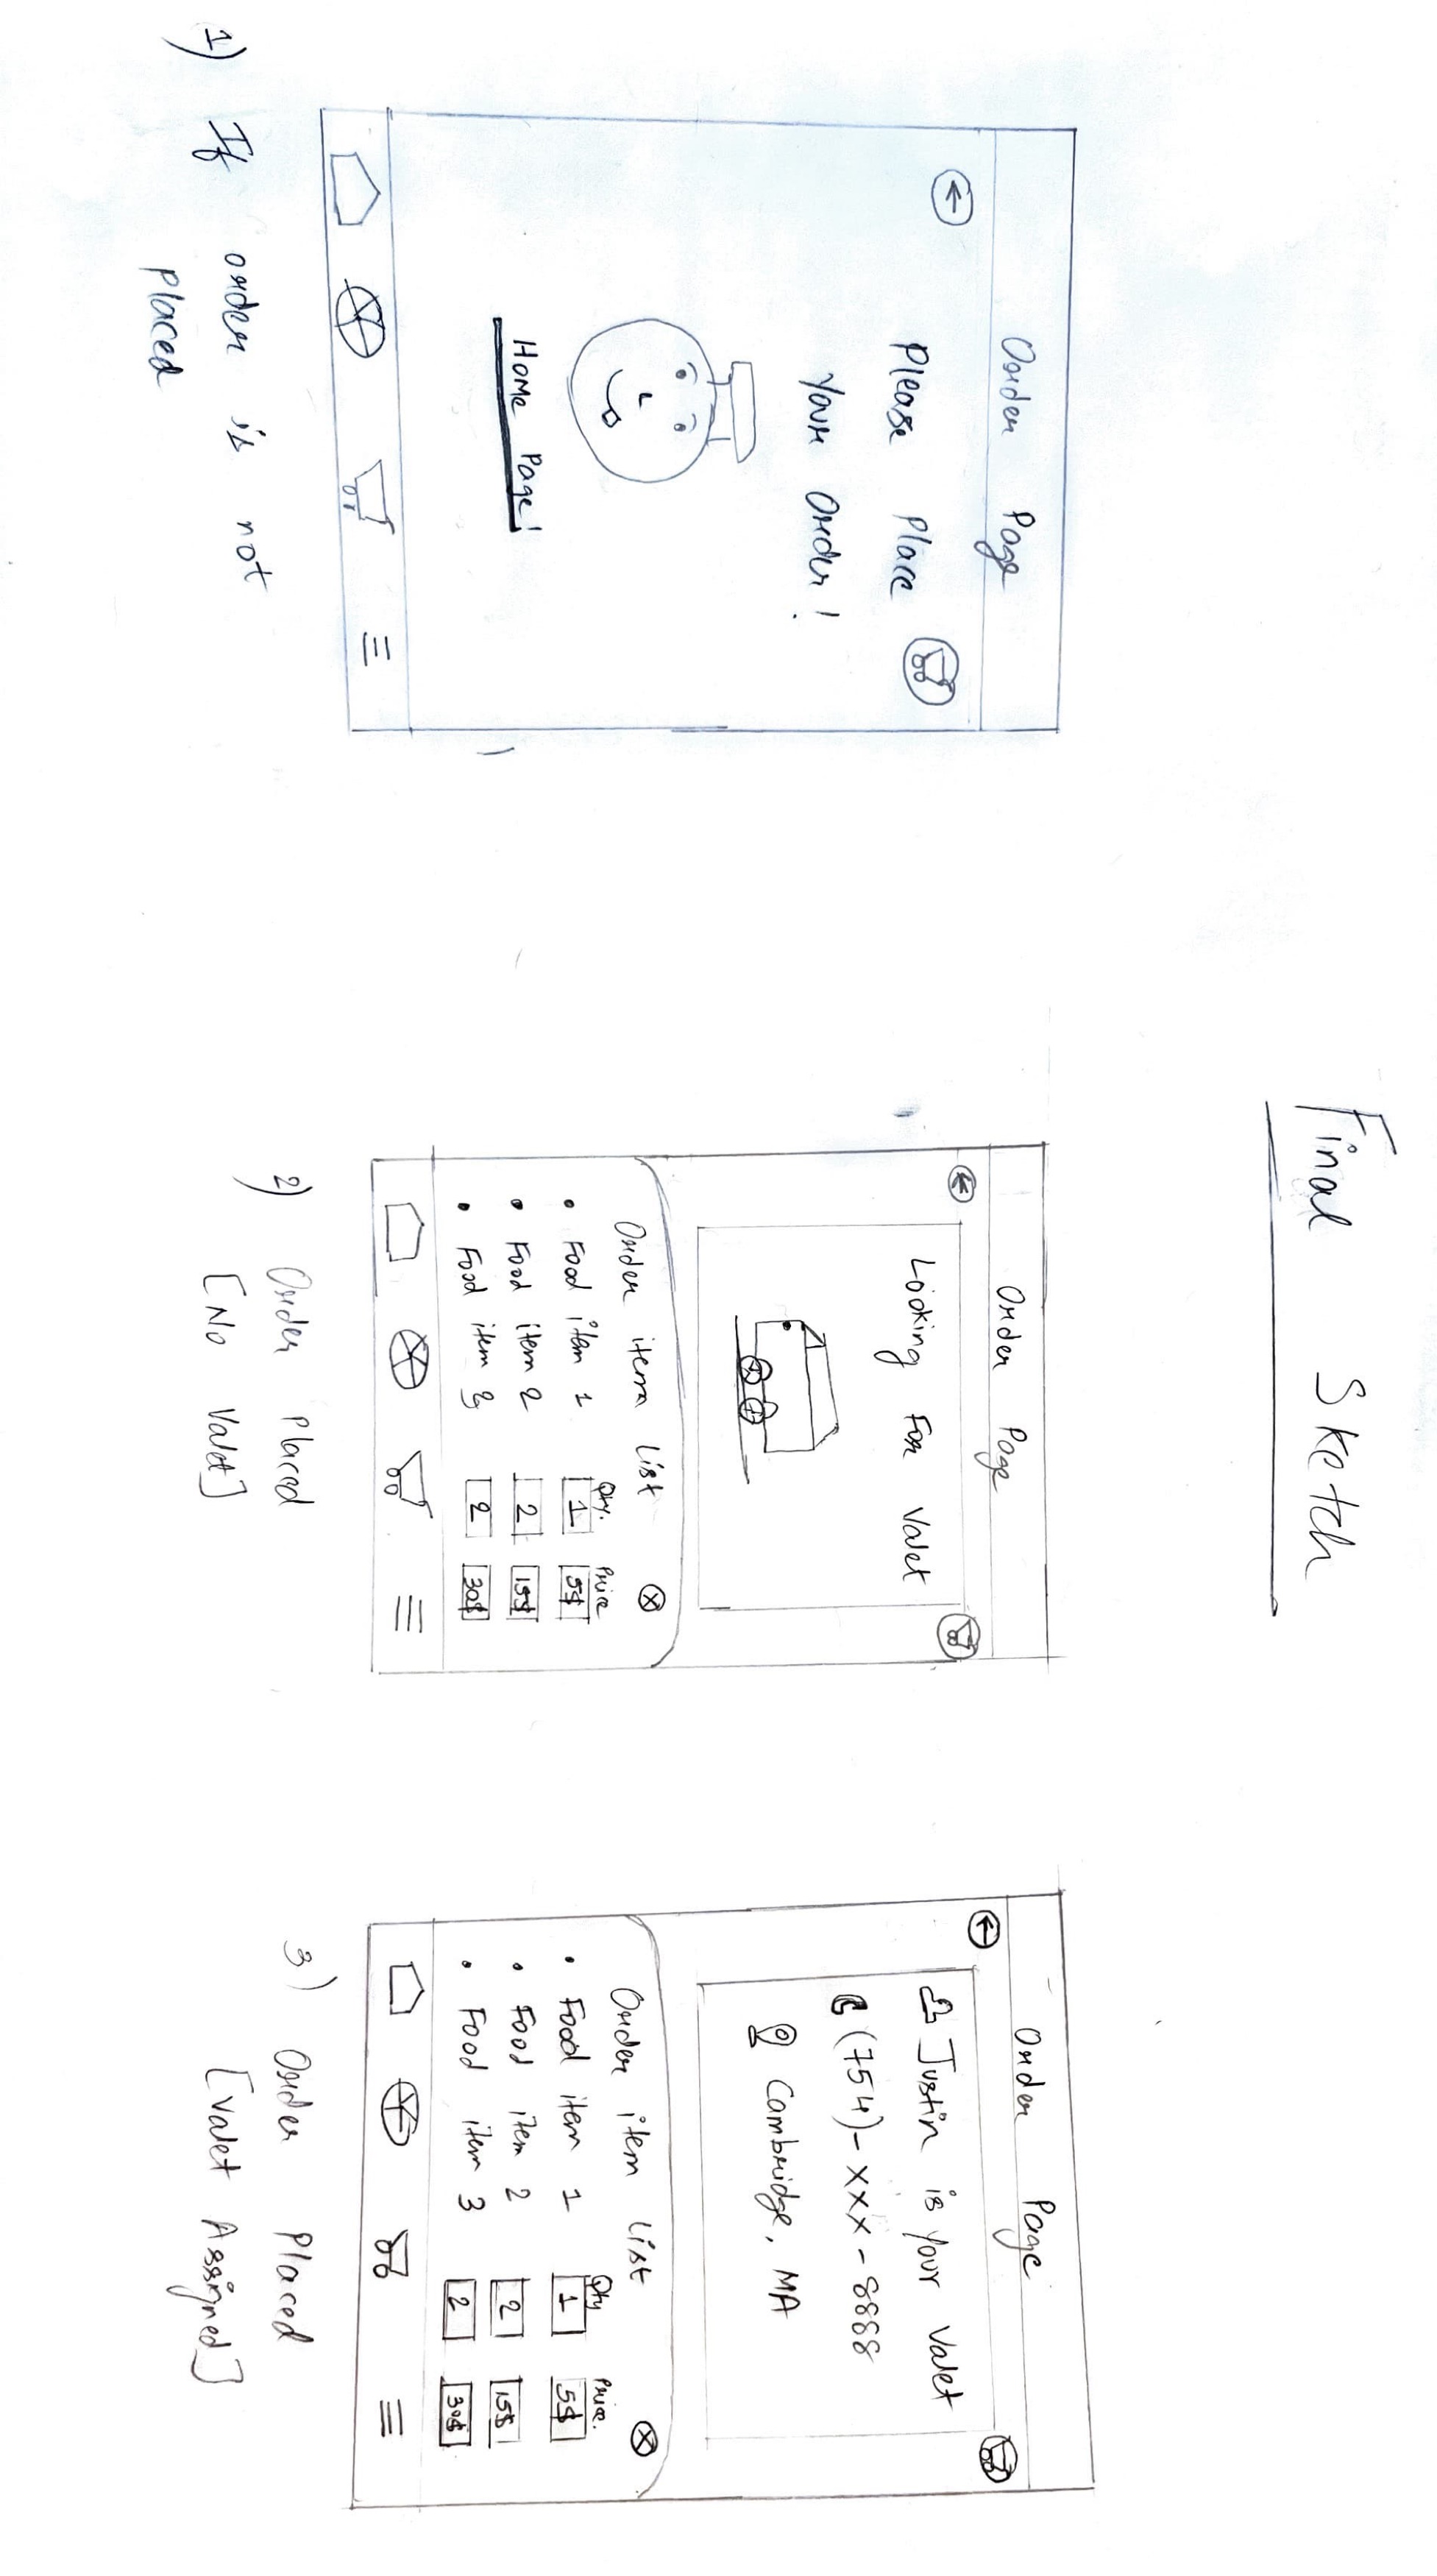 Final Sketch
Order Page
Please Place
Your Order!
Home Page!
1) If order is not
Placed
Order Page
Looking For Valet
Order item List
Qty. Price
• Food item 1 1 5$
• Food item 2 2 15$
• Food item 3 2 30$
2) Order Placed
[No Valet]
Order Page
Justin is Your Valet
(754)-XXX-8888
Cambridge, MA
Order item List
Qty Price.
• Food item 1 1 5$
• Food item 2 2 15$
• Food item 3 2 30$
3) Order Placed
[Valet Assigned]